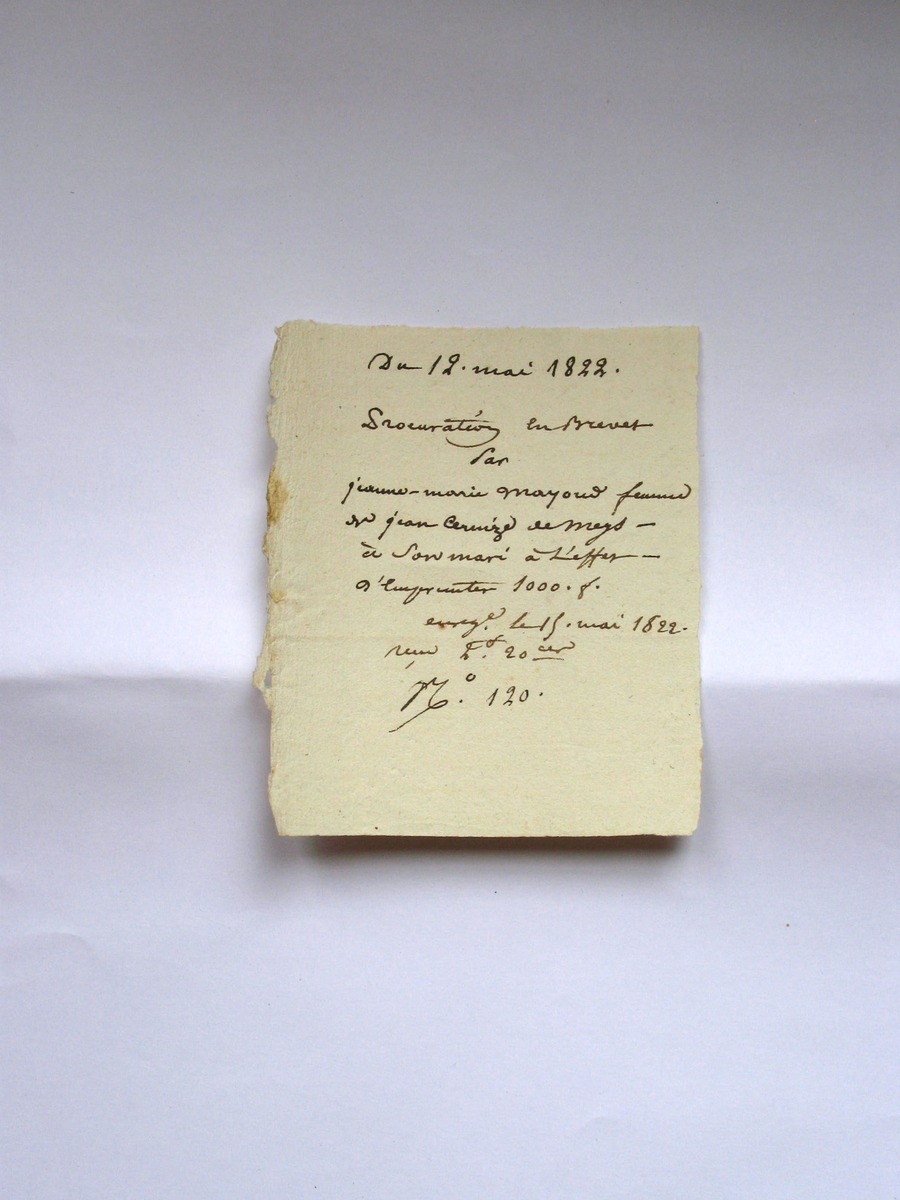 Du 12. mai 1822.
Procuration en Brevet
Par
jeanne-marie mayoud femme
de jean Cervize de meys -
à Son mari à L'effet -
d'Emprunter 1000. f.
enregé. le 15. mai 1822.
reçu 2 f. 20 ces
No. 120.